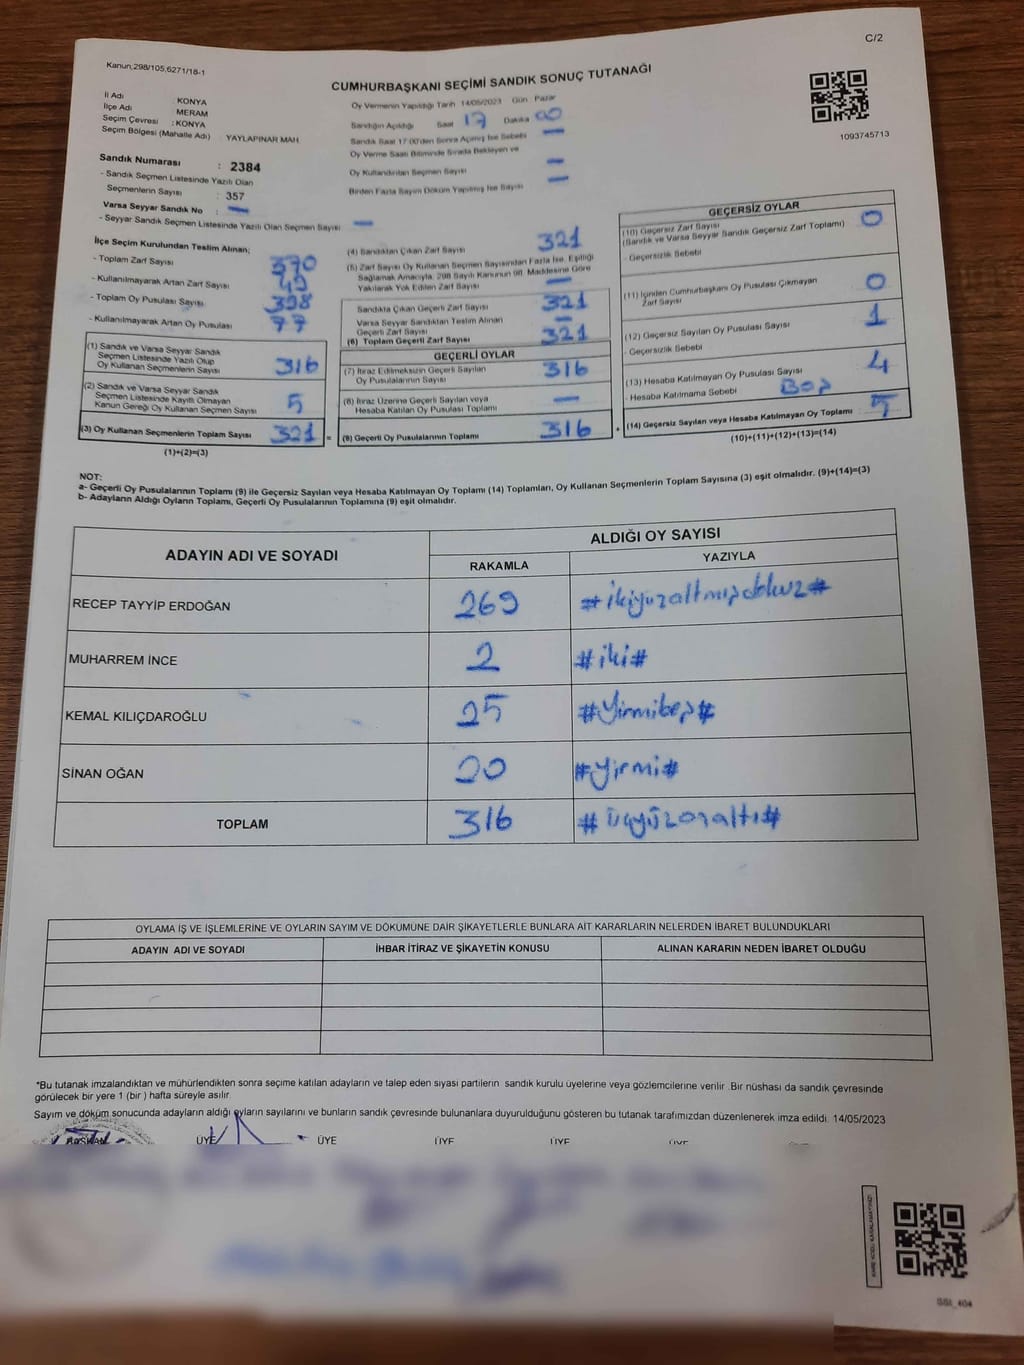 C/2
Kanun,298/105,6271/18-1
CUMHURBAŞKANI SEÇİMİ SANDIK SONUÇ TUTANAĞI
1093745713
İl Adı : KONYA
İlçe Adı MERAM
Seçim Çevresi : KONYA
Seçim Bölgesi (Mahalle Adı) : YAYLAPINAR MAH
Oy Vermenin Yapıldığı Tarih 14/05/2023 Gün Pazar
Sandığın Açıldığı Saat 17 Dakika 00
Sandık Saat 17:00'den Sonra Açımış İse Sebebi —
Oy Verme Saati Bitiminde Sırada Bekleyen ve
Oy Kullandırılan Seçmen Sayısı —
Birden Fazla Sayım Döküm Yapılmış İse Sayısı —
Sandık Numarası : 2384
- Sandık Seçmen Listesinde Yazılı Olan
Seçmenlerin Sayısı : 357
Varsa Seyyar Sandık No : —
- Seyyar Sandık Seçmen Listesinde Yazılı Olan Seçmen Sayısı —
İlçe Seçim Kurulundan Teslim Alınan;
- Toplam Zarf Sayısı 370
- Kullanılmayarak Artan Zarf Sayısı 49
- Toplam Oy Pusulası Sayısı 398
- Kullanılmayarak Artan Oy Pusulası 77
(1) Sandık ve Varsa Seyyar Sandık
Seçmen Listesinde Yazılı Olup
Oy Kullanan Seçmenlerin Sayısı 316
(2) Sandık ve Varsa Seyyar Sandık
Seçmen Listesinde Kayıtlı Olmayan
Kanun Gereği Oy Kullanan Seçmen Sayısı 5
(3) Oy Kullanan Seçmenlerin Toplam Sayısı 321 =
(1)+(2)=(3)
(4) Sandıktan Çıkan Zarf Sayısı 321
(5) Zarf Sayısı Oy Kullanan Seçmen Sayısından Fazla İse, Eşitliği
Sağlamak Amacıyla, 298 Sayılı Kanunun 98. Maddesine Göre
Yakılarak Yok Edilen Zarf Sayısı —
Sandıkta Çıkan Geçerli Zarf Sayısı 321
Varsa Seyyar Sandıktan Teslim Alınan
Geçerli Zarf Sayısı —
(6) Toplam Geçerli Zarf Sayısı 321
GEÇERLİ OYLAR
(7) İtiraz Edilmeksizin Geçerli Sayılan
Oy Pusulalarının Sayısı 316
(8) İtiraz Üzerine Geçerli Sayılan veya
Hesaba Katılan Oy Pusulası Toplamı —
(9) Geçerli Oy Pusulalarının Toplamı 316 +
GEÇERSİZ OYLAR
(10) Geçersiz Zarf Sayısı 0
(Sandık ve Varsa Seyyar Sandık Geçersiz Zarf Toplamı)
- Geçersizlik Sebebi
(11) İçinden Cumhurbaşkanı Oy Pusulası Çıkmayan
Zarf Sayısı 0
(12) Geçersiz Sayılan Oy Pusulası Sayısı 1
- Geçersizlik Sebebi
(13) Hesaba Katılmayan Oy Pusulası Sayısı 4
- Hesaba Katılmama Sebebi Boş
(14) Geçersiz Sayılan veya Hesaba Katılmayan Oy Toplamı : 5
(10)+(11)+(12)+(13)=(14)
NOT:
a- Geçerli Oy Pusulalarının Toplamı (9) ile Geçersiz Sayılan veya Hesaba Katılmayan Oy Toplamı (14) Toplamları, Oy Kullanan Seçmenlerin Toplam Sayısına (3) eşit olmalıdır. (9)+(14)=(3)
b- Adayların Aldığı Oyların Toplamı, Geçerli Oy Pusulalarının Toplamına (9) eşit olmalıdır.
ADAYIN ADI VE SOYADI
ALDIĞI OY SAYISI
RAKAMLA YAZIYLA
RECEP TAYYİP ERDOĞAN 269 #ikiyüzaltmışdokuz#
MUHARREM İNCE 2 #iki#
KEMAL KILIÇDAROĞLU 25 #Yirmibeş#
SİNAN OĞAN 20 #yirmi#
TOPLAM 316 #üçyüzonaltı#
OYLAMA İŞ VE İŞLEMLERİNE VE OYLARIN SAYIM VE DÖKÜMÜNE DAİR ŞİKAYETLERLE BUNLARA AİT KARARLARIN NELERDEN İBARET BULUNDUKLARI
ADAYIN ADI VE SOYADI İHBAR İTİRAZ VE ŞİKAYETİN KONUSU ALINAN KARARIN NEDEN İBARET OLDUĞU
*Bu tutanak imzalandıktan ve mühürlendikten sonra seçime katılan adayların ve talep eden siyasi partilerin sandık kurulu üyelerine veya gözlemcilerine verilir .Bir nüshası da sandık çevresinde
görülecek bir yere 1 (bir ) hafta süreyle asılır.
Sayım ve döküm sonucunda adayların aldığı oyların sayılarını ve bunların sandık çevresinde bulunanlara duyurulduğunu gösteren bu tutanak tarafımızdan düzenlenerek imza edildi. 14/05/2023
BAŞKAN ÜYE ÜYE ÜYE ÜYE ÜYE